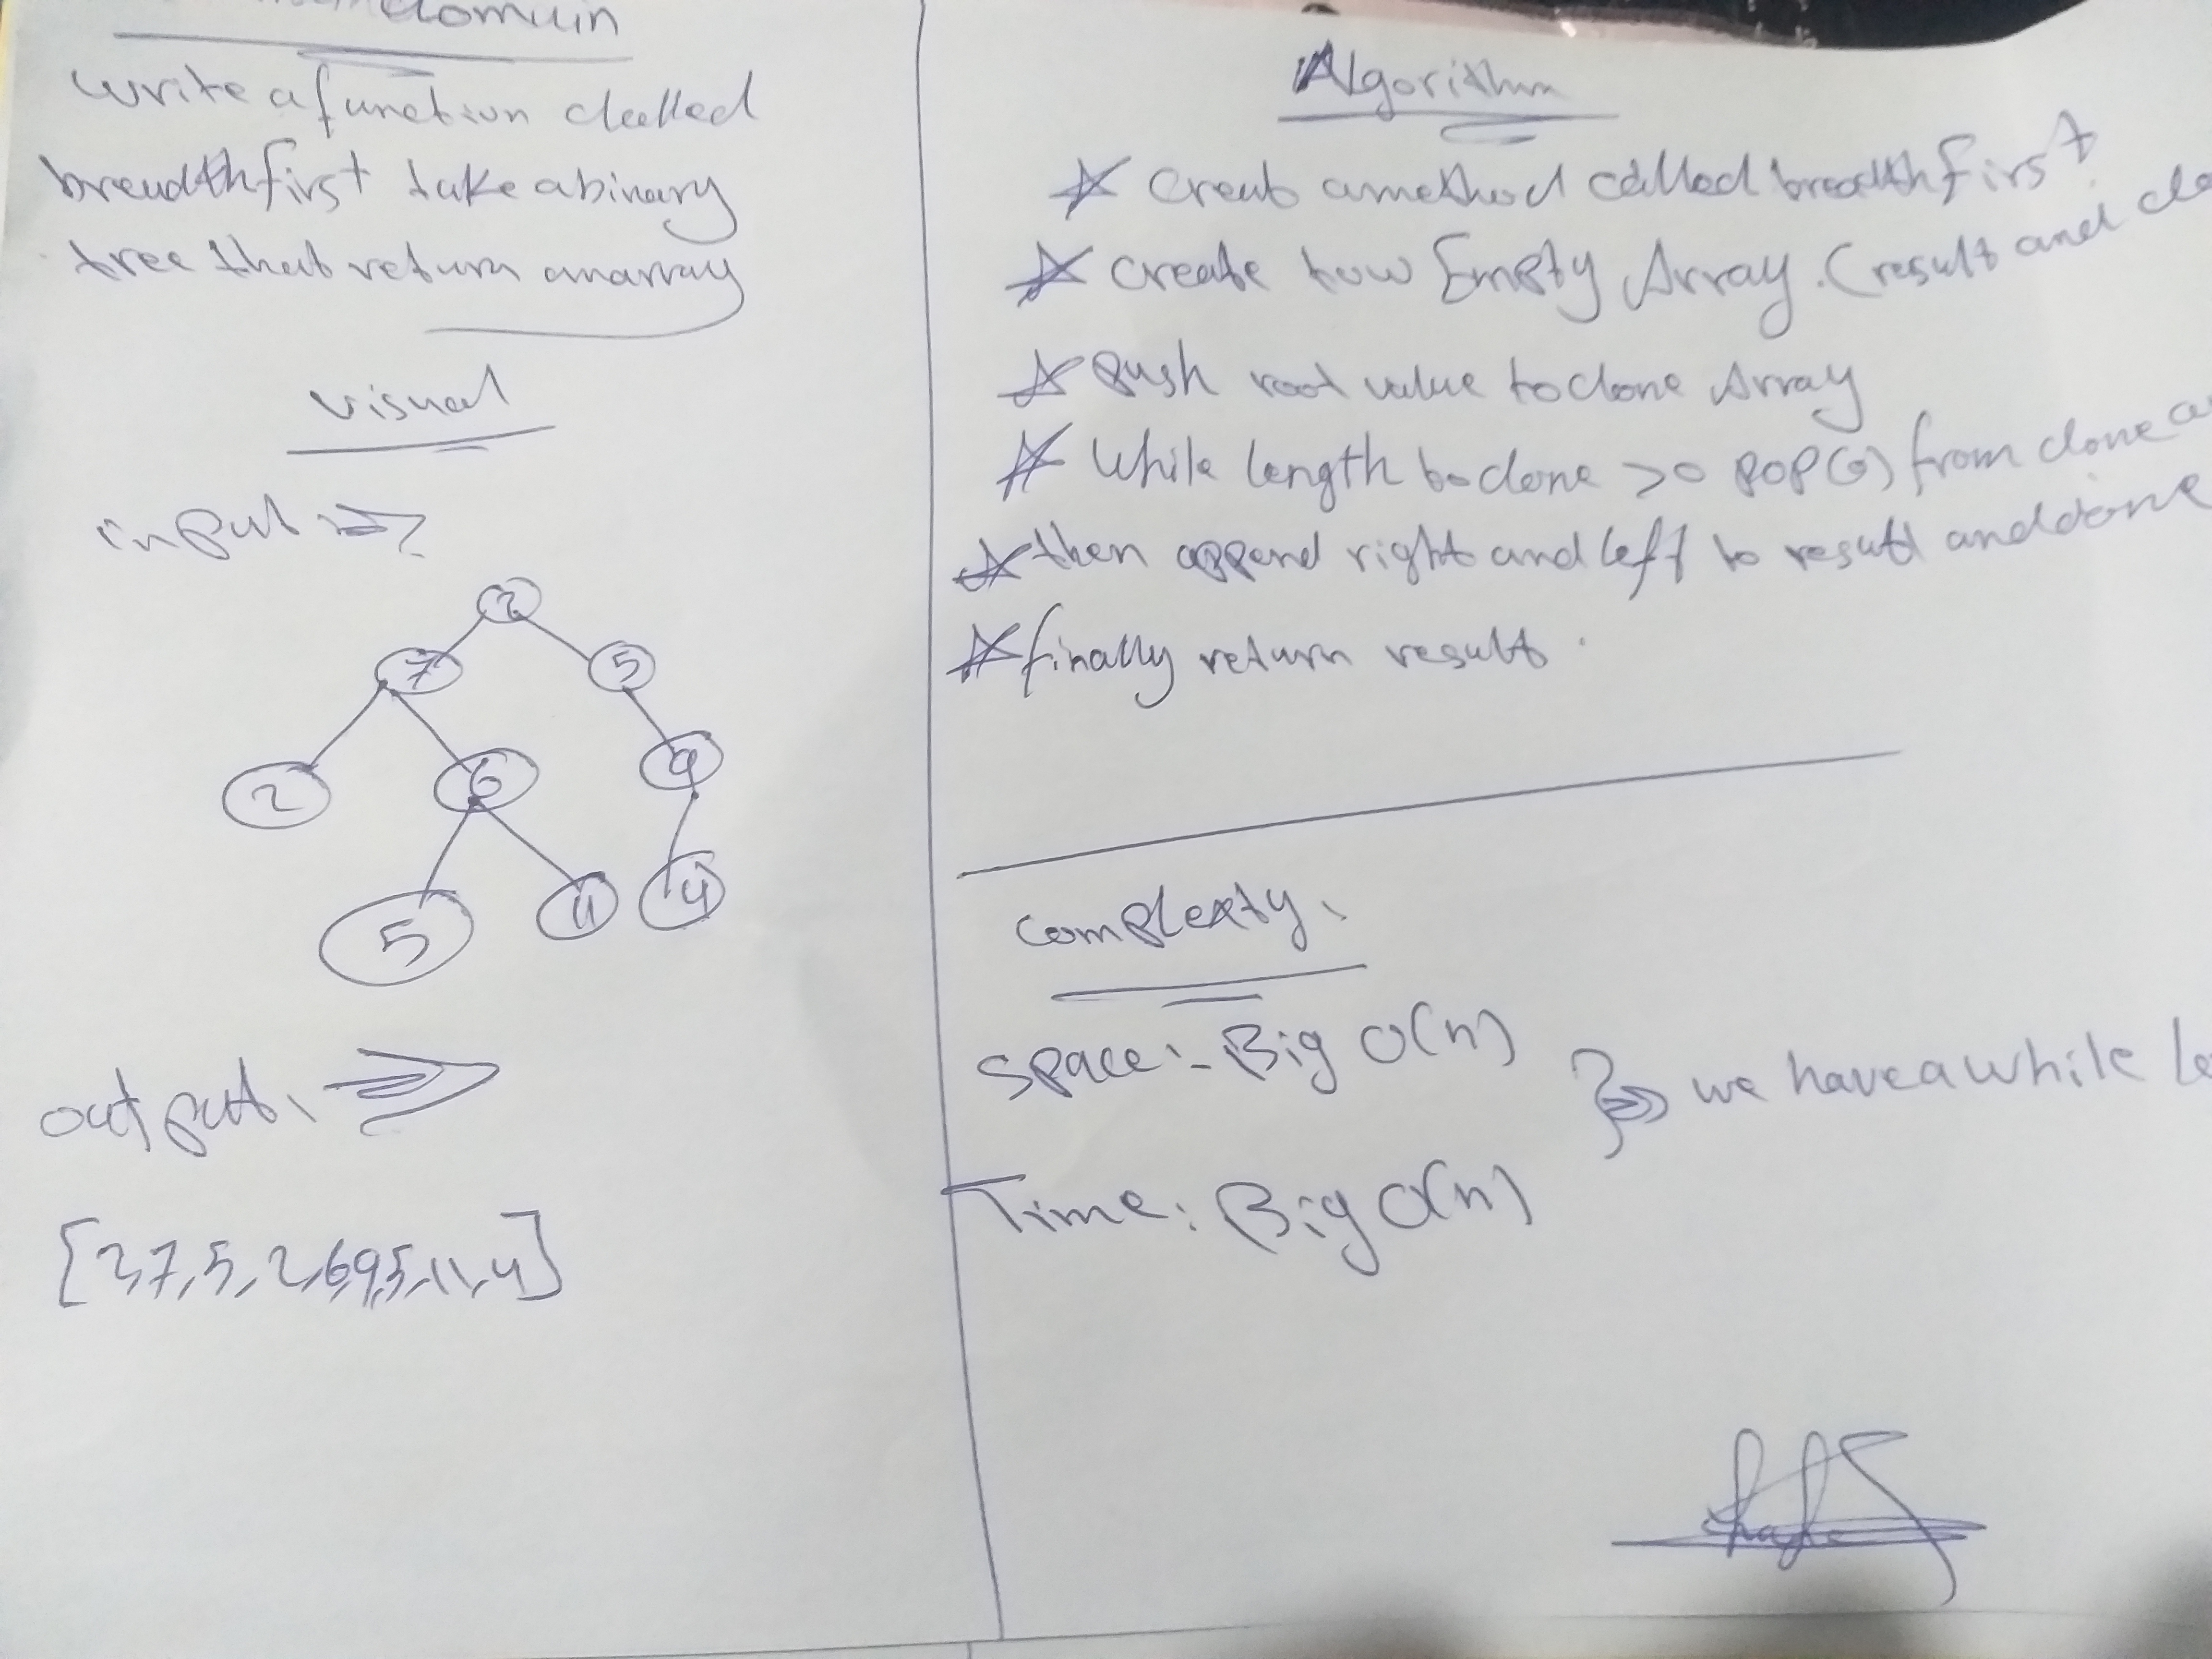 domain
write a function called
breadthfirst take a binary
tree that return an array
visual
input =>
2
7 5
2 6 9
5 11 4
output. =>
[2,7,5,2,6,9,5,11,4]
Algorithm
Create a method called breadthfirst
Create tow Empty Array. (result and
push root value to clone Array
While length to clone >0 pop(0) from clone
then append right and left to result and clone
finally return result.
Complexty.
Space:- Big O(n)
we have a while
Time: Big O(n)